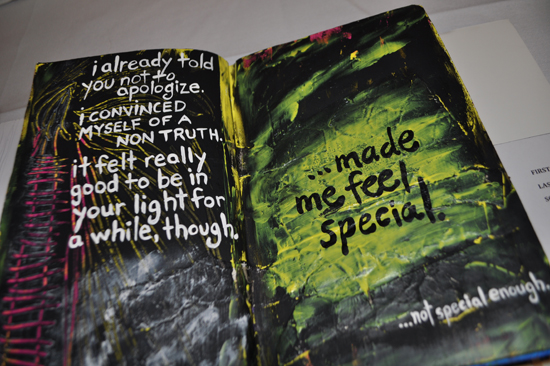 i already told
you not to
apologize.
i CONVINCED
MYSELF OF A
NON TRUTH.
it felt really
good to be in
your light for
a while, though.
...made
me feel
special.
...not special enough.
FIRST
LAS